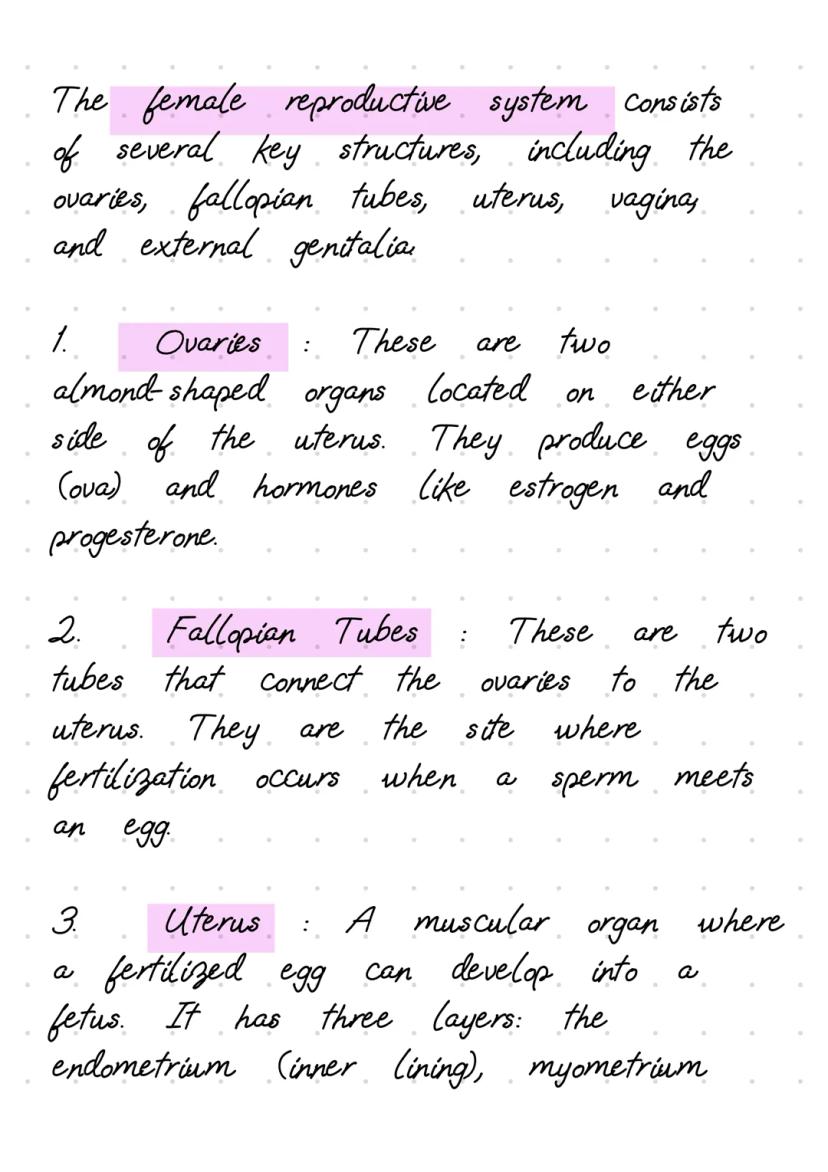 The female reproductive system consists
of several key structures, including the
ovaries, fallopian tubes, uterus, vagina,
and external genitalia.
1. Ovaries : These are two
almond-shaped organs located on either
side of the uterus. They produce eggs
(ova) and hormones like estrogen and
progesterone.
2. Fallopian Tubes : These are two
tubes that connect the ovaries to the
uterus. They are the site where
fertilization occurs when a sperm meets
an egg.
3. Uterus : A muscular organ where
a fertilized egg can develop into a
fetus. It has three layers: the
endometrium (inner lining), myometrium